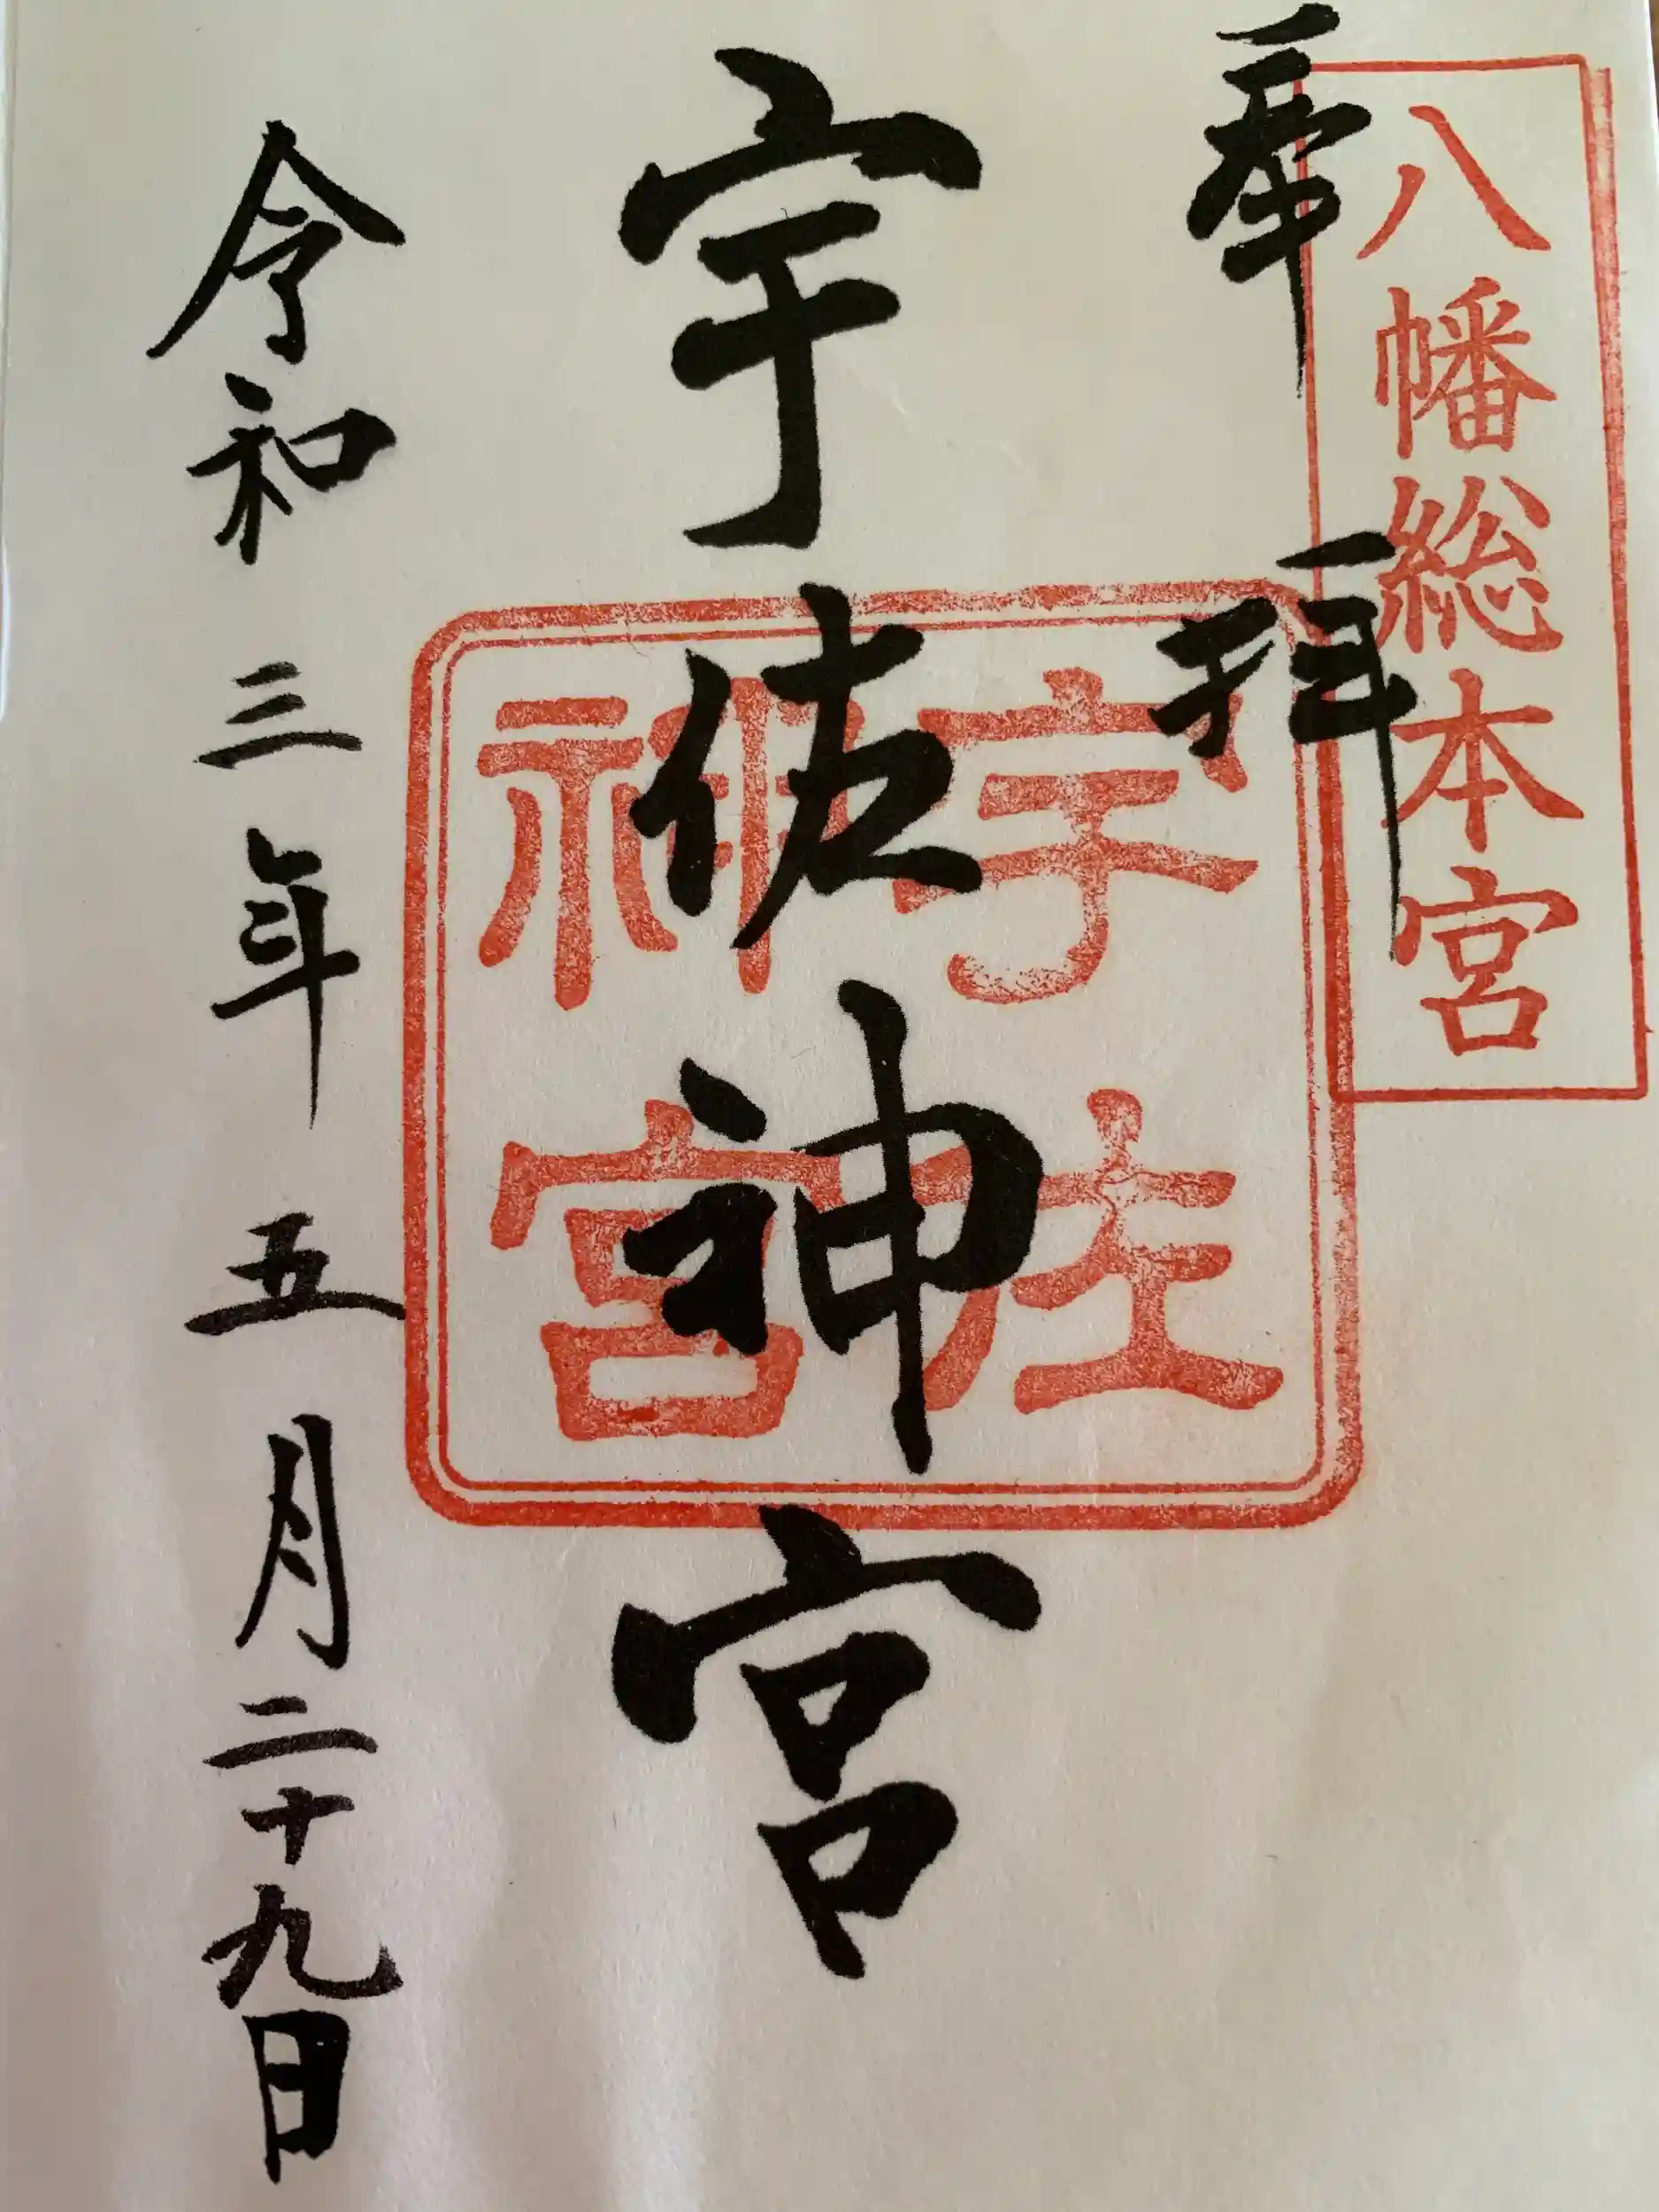 八幡総本宮
奉拝
宇佐神宮
宇佐
神宮
令和三年五月二十九日